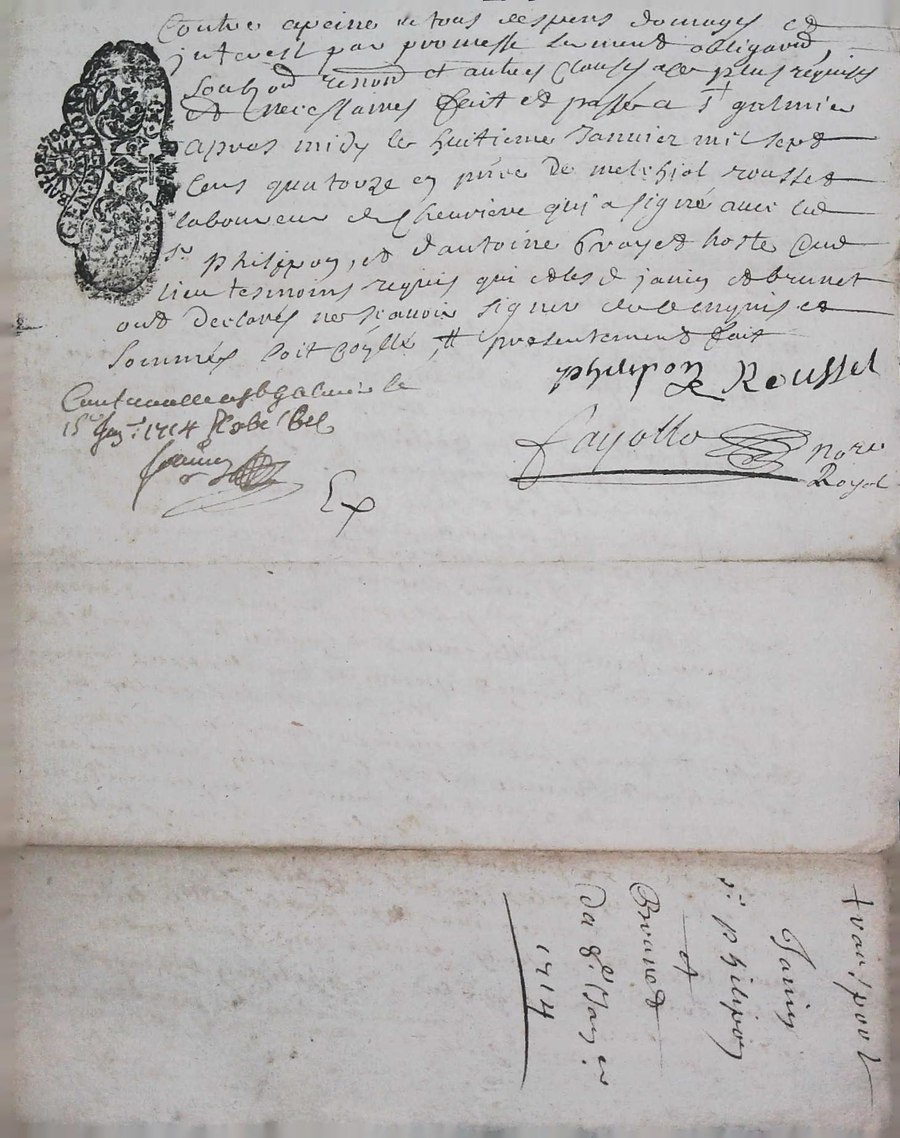 Contre a peine de tous despens domages et
interest par promesse serment obligaōn,
soubzon renonōn et autres clauses a ce plus requises
et necessaires fait et passé a St galmier
apres midy le huitieme Janvier mil sept
cens quatorze en pñce de melchiol rousset
laboureur de Cheuriere qui a signé auec led
Sr philippon, et d'antoine hoste dud
lieu tesmoins requis qui et lesd janin et brunet
ont declarés ne sçauoir signer de ce enquis et
sommés soit presentement fait
philipon Roussel
Contrerolle a St Galmier le
15e Janr 1714
fayolle Nore
Royal
Janin
Ex
transport
Janin
Sr philipon
et
Brunet
Du 8e Janer
1714